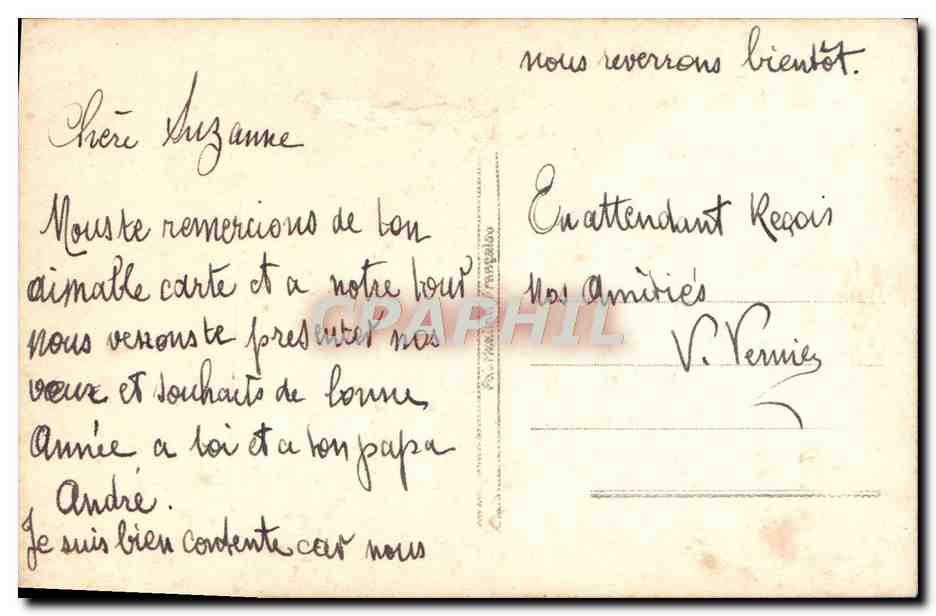 Chère Suzanne
Nous te remercions de ton
aimable carte et a notre tour
nous venons te presenter nos
vœux et souhaits de bonne
Année a toi et a ton papa
André.
Je suis bien contente car nous
nous reverrons bientôt.
En attendant Reçois
Nos Amitiés
V. Vernier
CPAPHIL